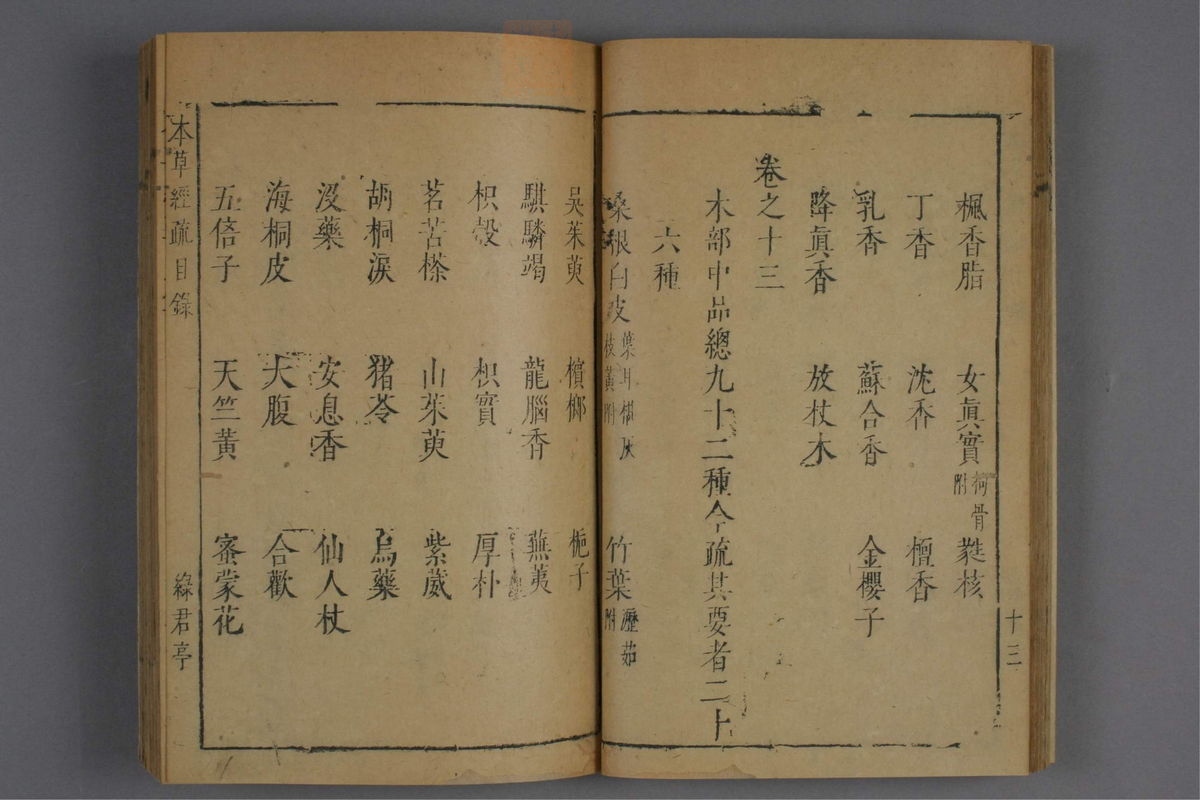 楓香脂 女眞實 枸骨附 蕤核
丁香 沈香 檀香
乳香 蘇合香 金櫻子
降眞香 放杖木
卷之十三
木部中品總九十二種今疏其要者二十
六種
桑根白皮 葉耳椹灰枝黃附 竹葉 瀝茹附
十三
吳茱萸 檳榔 梔子
騏驎竭 龍腦香 蕪荑
枳殼 枳實 厚朴
茗苦𣗪 山茱萸 紫葳
胡桐淚 猪苓 烏藥
沒藥 安息香 仙人杖
海桐皮 大腹 合歡
五倍子 天竺黃 蜜蒙花
本草經疏 目錄 綠君亭